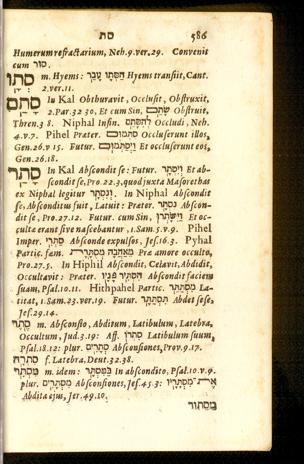 סת 586
Humerum refractarium, Neh.9.ver.29. Convenit
cum סור
סְתָו m. Hyems: הַסְּתָו עָבָר Hyems transiit, Cant.
2.ver.11.
סָתַם In Kal Obturavit, Occlusit, Obstruxit,
2.Par.32 30. Et cum Sin, שָׂתַם Obstruit,
Thren.3 8. Niphal Infin. לְהִסָּתֵם Occludi, Neh.
4.v.7. Pihel Præter. סִתְּמוּם Occluserunt illos,
Gen.26.v 15. Futur. וַיְסַתְּמוּם Et occluserunt eos,
Gen.26.18.
סָתַר In Kal Abscondit se: Futur. וְיִסְתָּר Et ab-
scondit se, Pro.22.3, quod juxta Masorethas
ex Niphal legitur וְנִסְתָּר In Niphal Abscondit
se, Absconditus fuit, Latuit: Præter. נִסְתָּר Abscon-
dit se, Pro.27.12. Futur. cum Sin, וַיִּשָּׂתְרוּ Et oc-
culta erant sive nascebantur, 1.Sam.5.v.9. Pihel
Imper. סַתְּרִי Absconde expulsos, Jes.16.3. Pyhal
Partic. fœm. מֵאַהֲבָה מְסֻתָּרֶת Præ amore occulto,
Pro.27.5. In Hiphil Abscondit, Celavit, Abdidit,
Occultavit: Præter. הִסְתִּיר פָּנָיו Abscondit faciem
suam, Psal.10.11. Hithpahel Partic. מִסְתַּתֵּר La-
titat, 1.Sam.23.ver.19. Futur. תִּסְתַּתָּר Abdet sese,
Jes.29.14.
סֵתֶר m. Absconsio, Abditum, Latibulum, Latebra,
Occultum, Jud.3.19: Aff. סִתְרוֹ Latibulum suum,
Psal.18.12: plur. סְתָרִים Absconsiones, Prov.9.17.
סִתְרָה f. Latebra, Deut.32.38.
מִסְתָּר m. idem: בַּמִּסְתָּר In abscondito, Psal.10.v.9.
plur. מִסְתָּרִים Absconsiones, Jes.45.3: מִסְתָּרָיו
Abdita ejus, Jer.49.10.
מסתור